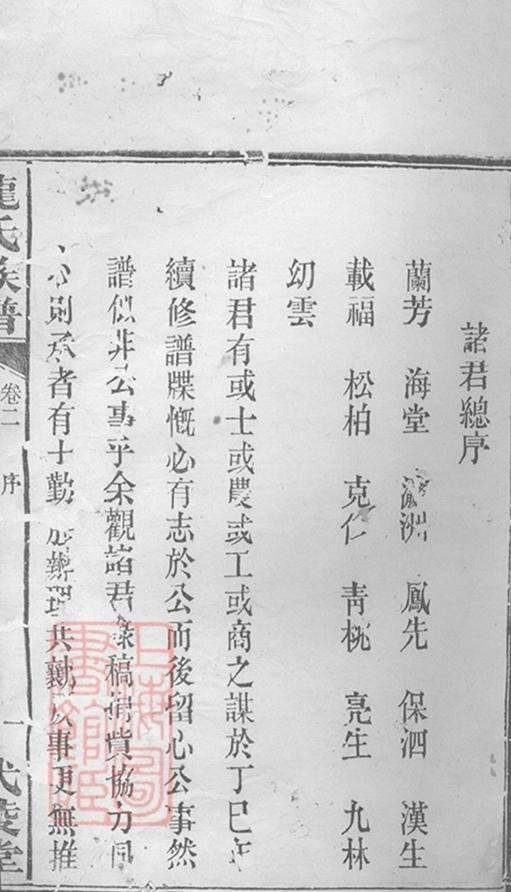 諸君總序
蘭芳 海堂 洲 鳳先 保泗 漢生
載福 松柏 克仁 青桃 亮生 九林
幻雲
諸君有或士或農或工或商之謀於丁巳年
續修譜牒慨必有志於公而後留心公事然
譜似非公事乎余觀諸君稿捐貲協力同
心則承者有十勤 辦理共勷 事更無推
龍氏族譜
卷二
序
一
武陵堂
上海圖書館藏